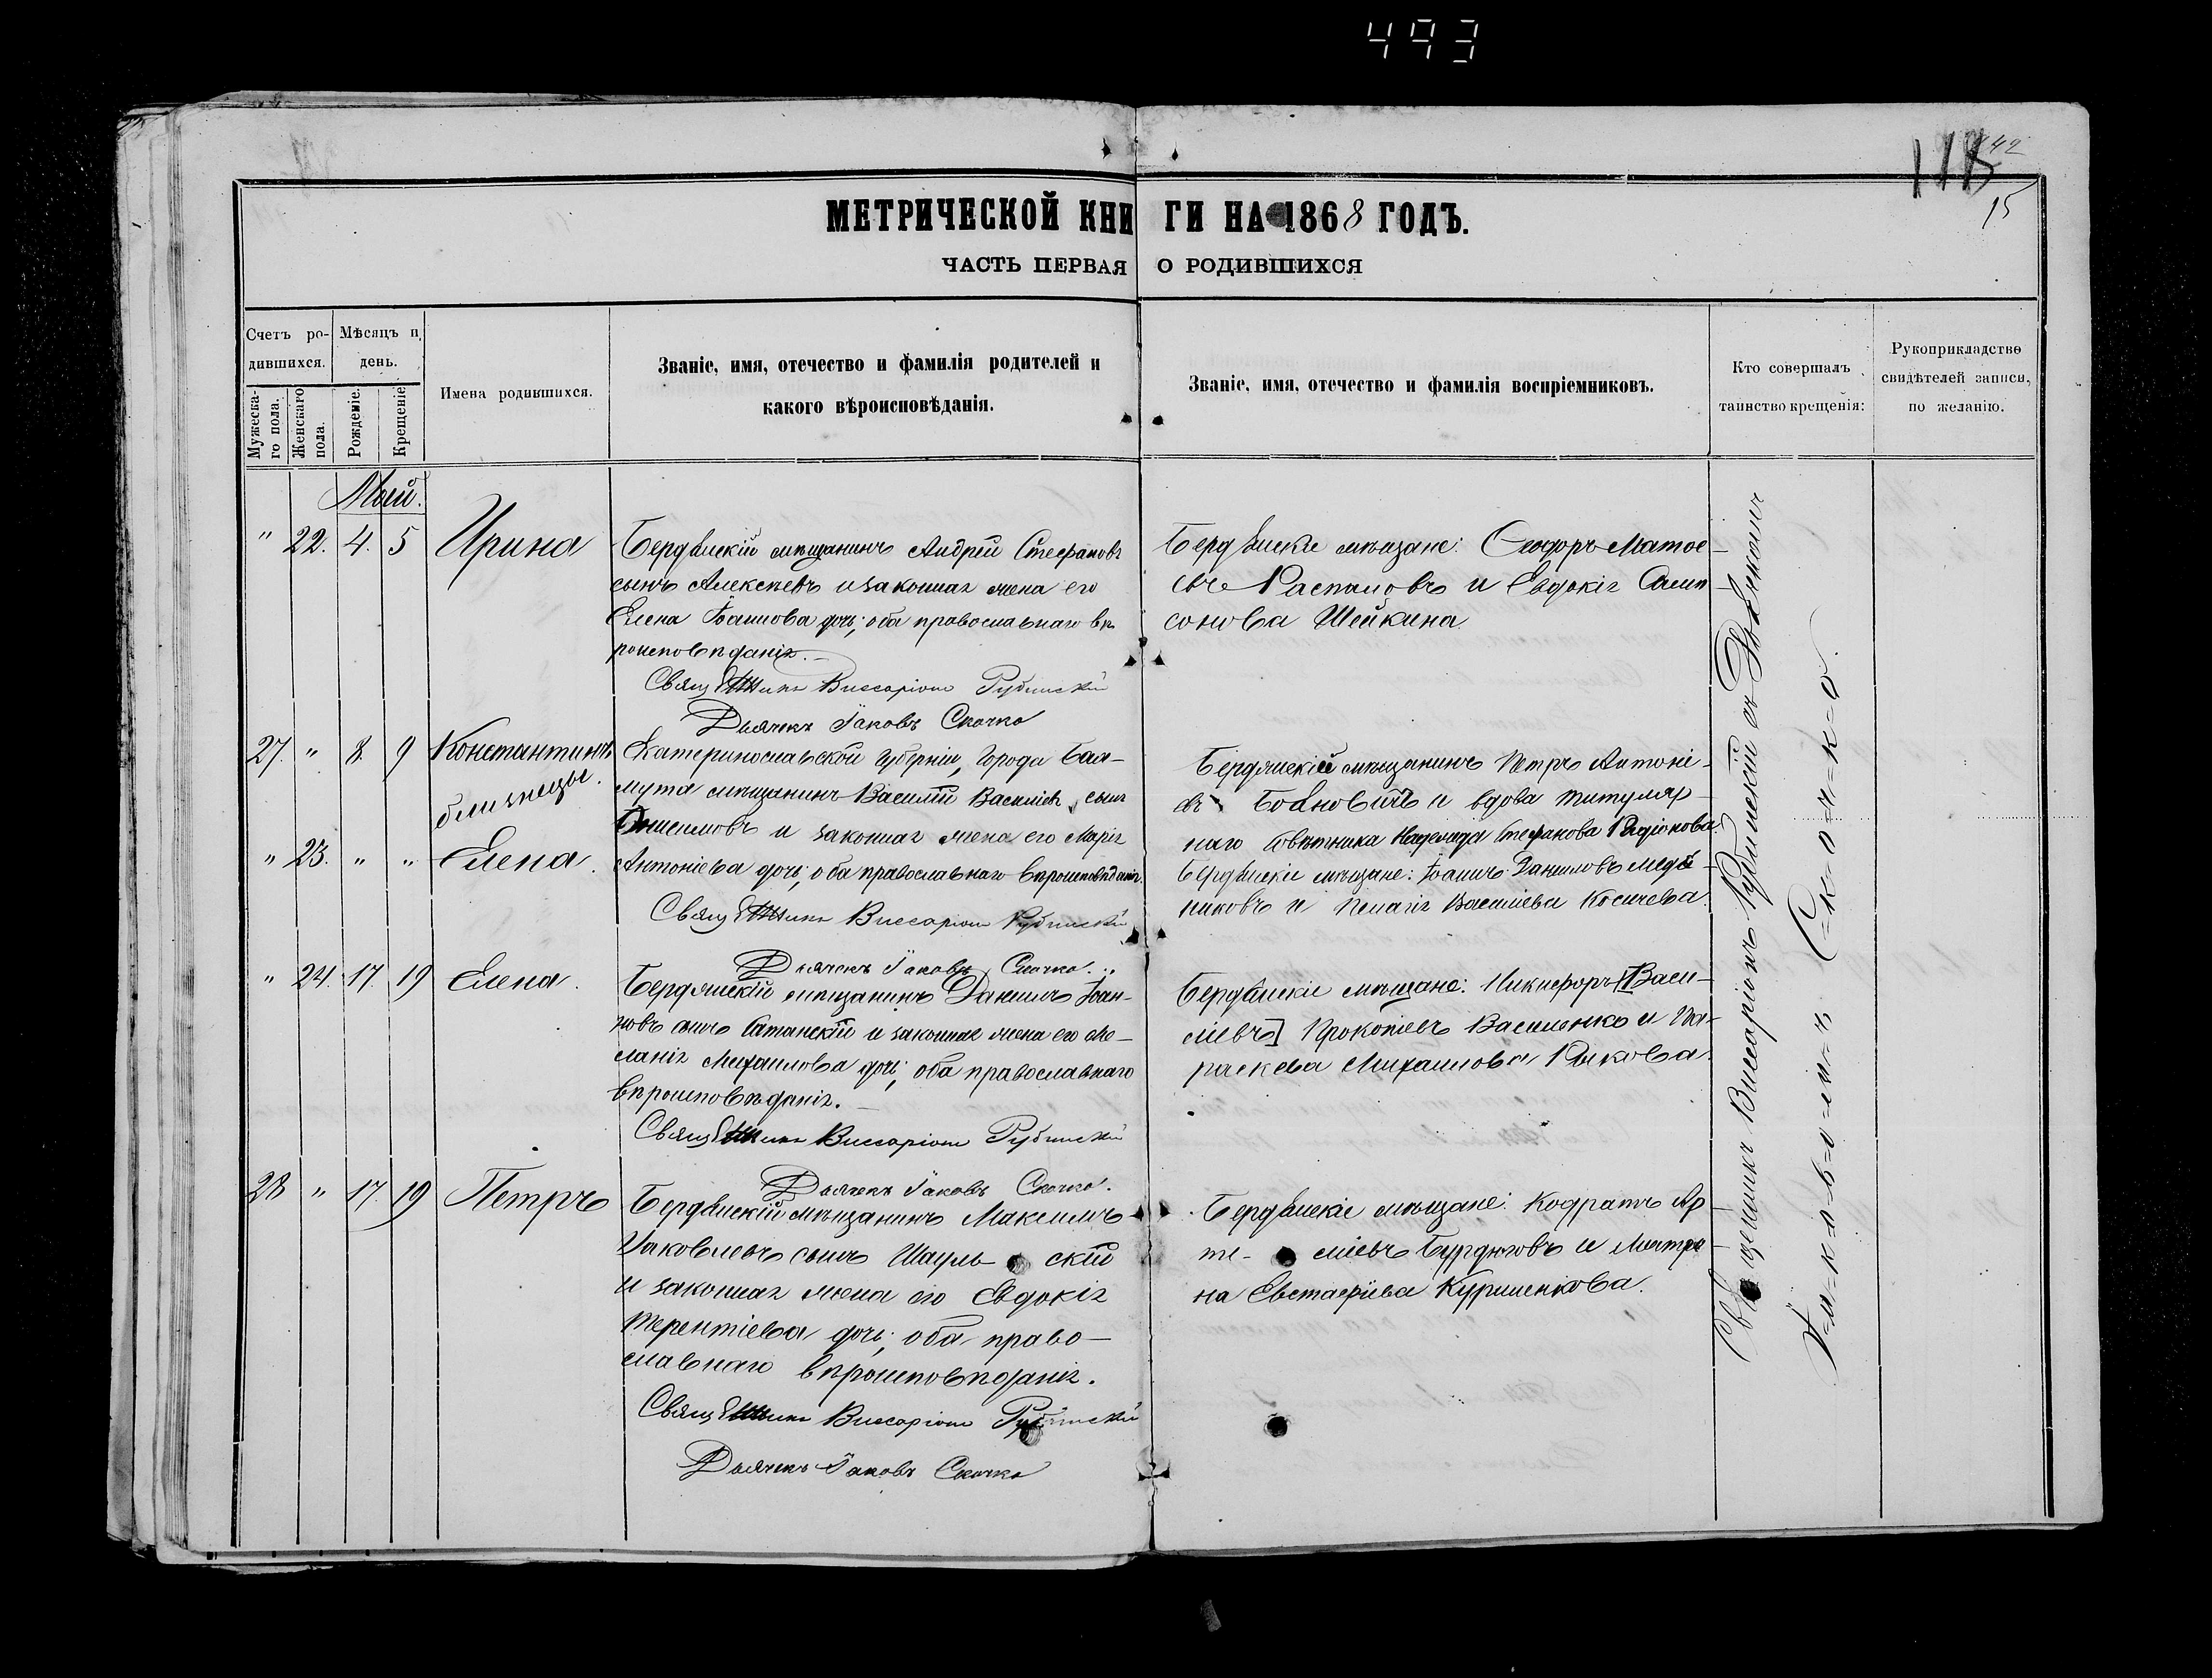 493
118
42
15
МЕТРИЧЕСКОЙ КНИГИ НА 1868 ГОДЪ.
ЧАСТЬ ПЕРВАЯ О РОДИВШИХСЯ
Счетъ ро-
дившихся.
Мужеска-
го пола.
Женскаго
пола.
Мѣсяцъ и
день.
Рожденіе.
Крещеніе
Имена родившихся.
Званіе, имя, отечество и фамилія родителей и
какого вѣроисповѣданія.
Званіе, имя, отечество и фамилія воспріемниковъ.
Кто совершалъ
таинство крещенія:
Рукоприкладство
свидѣтелей записи,
по желанію.
Май.
" 22. 4. 5 Ирина
Бердянскій мѣщанинъ Андрій Стефановъ
сынъ Алексѣевъ и законная жена его
Елена Іоаннова дочь; оба православнаго вѣ
роисповѣданія.
Священникъ Виссаріонъ Рубинскій
Дьячекъ Іаковъ Скочко
Бердянскіе мѣщане: Ѳеодоръ Матѳе-
евъ Распаповъ и Евдокія Самп
сонова Шейкина
27. " 8. 9 Константинъ
близнецы.
" 23. " " Елена.
Екатеринославской губерніи, города Бах-
мута мѣщанинъ Василій Василіевъ сынъ
Онисимовъ и законная жена его Марія
Антоніева дочь; оба православнаго вѣроисповѣданія.
Священникъ Виссаріонъ Рубинскій
Дьячекъ Іаковъ Скочко.
Бердянскій мѣщанинъ Петръ Антоні-
евъ и вдова титуляр-
наго совѣтника Надежда Стефанова Радіонова.
Бердянскіе мѣщане: Іоаннъ Даниловъ Медя-
никовъ и Пелагія Василіева Косичева.
" 24. 17. 19 Елена.
Бердянскій мѣщанинъ Даніилъ Іоан-
новъ сынъ Сатанскій и законная жена его Ме-
ланія Михаилова дочь; оба православнаго
вѣроисповѣданія.
Священникъ Виссаріонъ Рубинскій
Дьячекъ Іаковъ Скочко.
Бердянскіе мѣщане: Никифоръ [Васи-
ліевъ] Прокопіевъ Василенко и Па-
раскева Михаилова Рыкова.
28 " 17. 19 Петръ
Бердянскій мѣщанинъ Максимъ
Іаковлевъ сынъ Шауль- скій
и законная жена его Евдокія
Терентіева дочь; оба право-
славнаго вѣроисповѣданія.
Священникъ Виссаріонъ Рубинскій
Дьячекъ Іаковъ Скочко
Бердянскіе мѣщане: Кодратъ Ар-
те- міевъ Бурдюговъ и Матро-
на Евстафіева Куршенкова.
Священникъ Виссаріонъ Рубинскій съ Дьячкомъ
І=а=к=о=в=о=м=ъ С=к=о=ч=к=о.